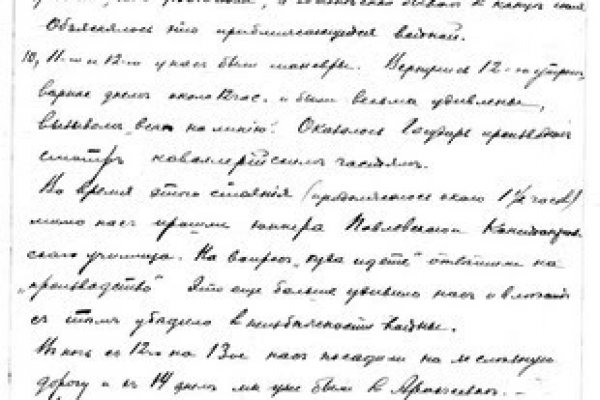 Объяснялось это приближающейся войной.
10, 11-го и 12-го у нас были маневры. Вернулись 12-го утром,
днем около 12 час. и были весьма удивлены,
вызовом "всех на линию". Оказалось Государь производит
смотр кавалерийским частям.
Во время этого стояния (продолжалось около 1½ часов)
мимо нас прошли юнкера Павловского
училища. На вопрос "куда идете" ответили на
"производство". Это еще больше удивило нас и
с тем убедило в неизбежности войны.
В ночь с 12го на 13ое нас посадили на железную
дорогу и 14 днем мы уже были в